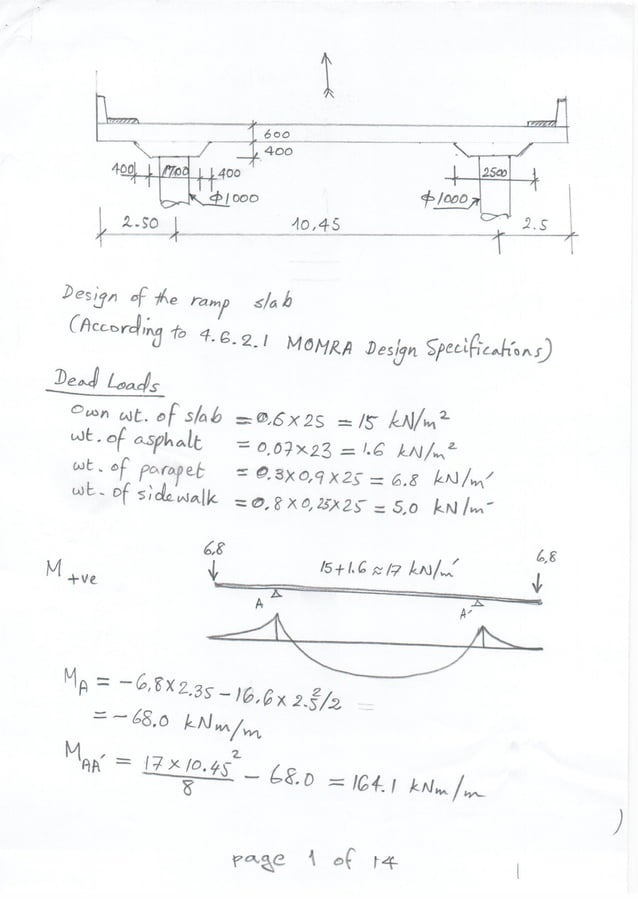 600
400
400 1700 400
2500
ϕ1000
ϕ1000
2.50 10.45 2.5
Design of the ramp slab
(According to 4.6.2.1 MOMRA Design Specifications)
Dead Loads
Own wt. of slab = 0.6 x 25 = 15 kN/m²
wt. of asphalt = 0.07 x 23 = 1.6 kN/m²
wt. of parapet = 0.3 x 0,9 x 25 = 6.8 kN/m'
wt. of sidewalk = 0.8 x 0,25 x 25 = 5.0 kN/m'
M +ve
6,8 15+1.6 ≈ 17 kN/m' 6,8
A A'
M_A = -6,8 x 2.35 - 16.6 x 2.5²/2 =
= -68.0 kNm/m
M_AA' = 17 x 10.45²/8 - 68.0 = 164.1 kNm/m
page 1 of 14